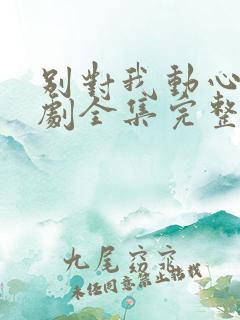 別對我動心
劇全集完整
九尾窈窕
未经同意禁止转载